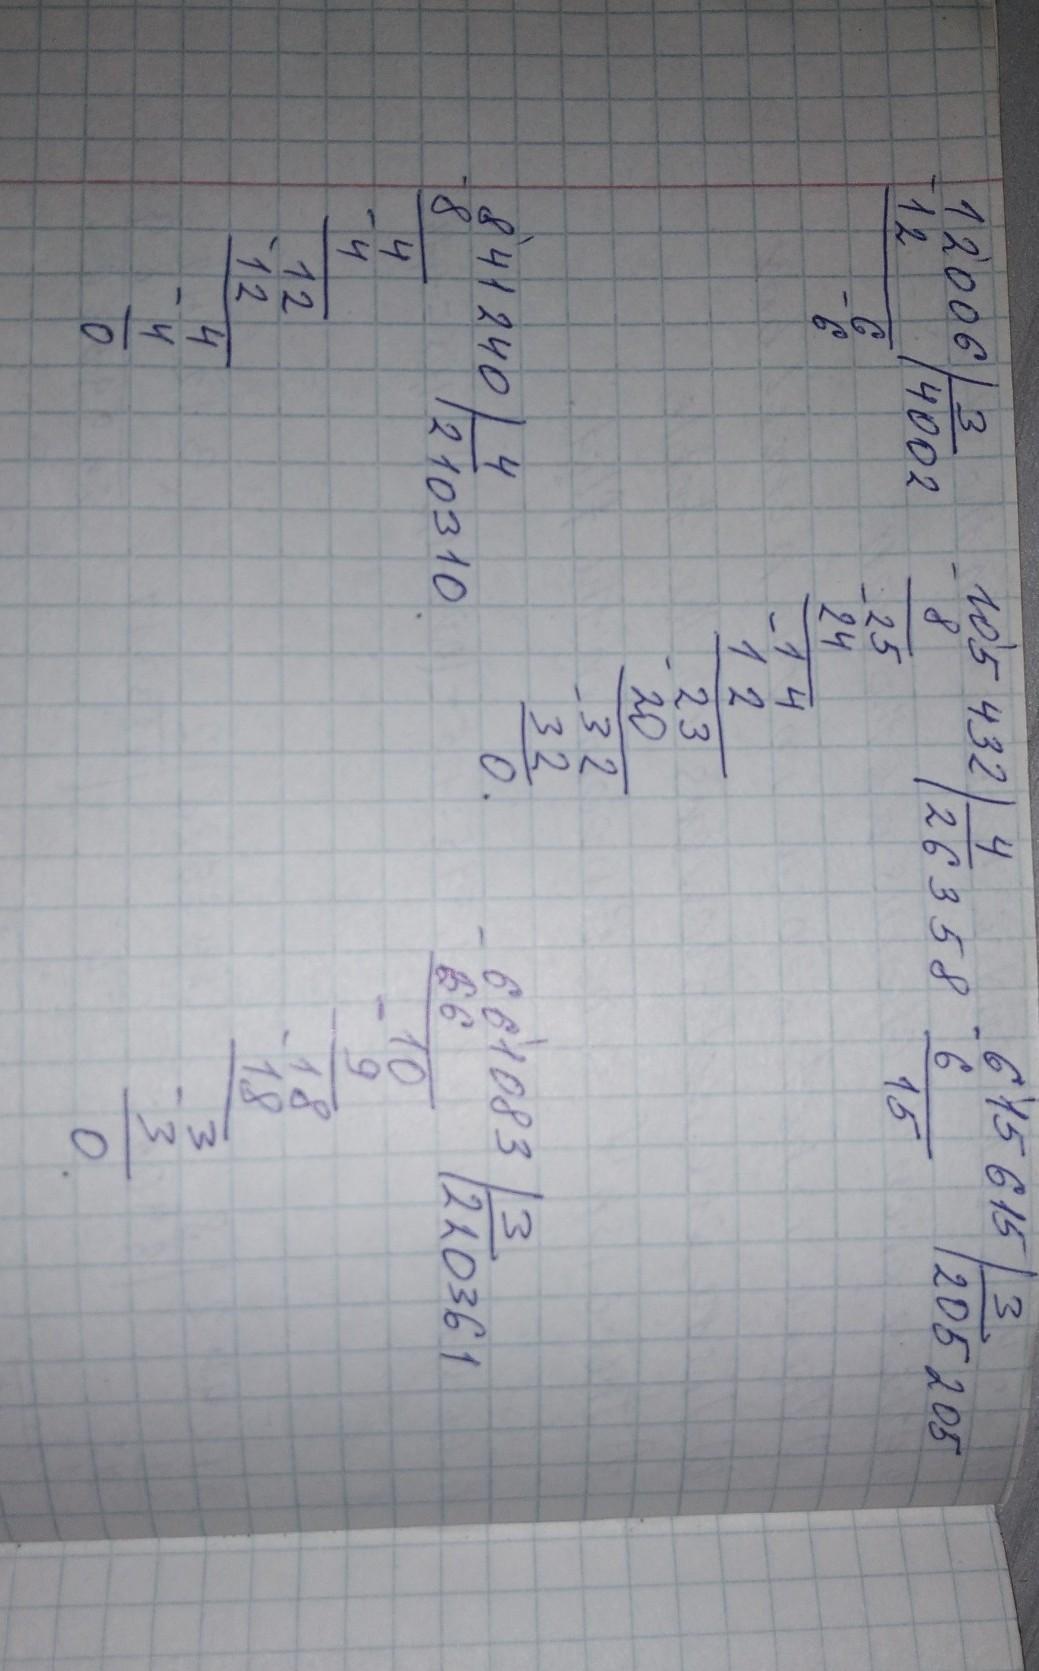 12006 | 3
-12 | 4002
-6
6
105432 | 4
-8 | 26358
-25
24
-14
12
-23
20
-32
32
0.
-615615 | 3
6 | 205205
15
841240 | 4
-8 | 210310
-4
4
12
-12
-4
4
0
-661083 | 3
66 | 220361
-10
9
-18
18
-3
3
0